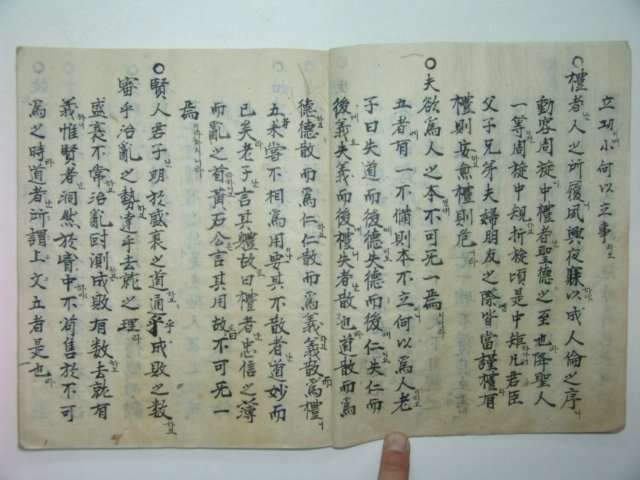 立功小何以立事
○禮者人之所履夙興夜寐以成人倫之序
動容周旋中禮者聖德之至也降聖人
一等周旋中規折旋須是中矩凡君臣
父子兄弟夫婦朋友之際皆當謹禮有
禮則安無禮則危
○夫欲爲人之本不可无一焉
五者有一不備則本不立何以爲人老
子曰失道而後德失德而後仁失仁而
後義失義而後禮失者散也道散而爲
德德散而爲仁仁散而爲義義散而爲禮
五者未嘗不相爲用要其不散者道妙而
已矣老子言其體故曰禮者忠信之薄
而亂之首黃石公言其用故曰不可无一
焉
○賢人君子明於盛衰之道通乎成敗之數
審乎治亂之勢達乎去就之理
盛衰不常治亂時測成敗有數去就有
義惟賢者洞然於中不苟售於不可
爲之時道者所謂上文五者是也